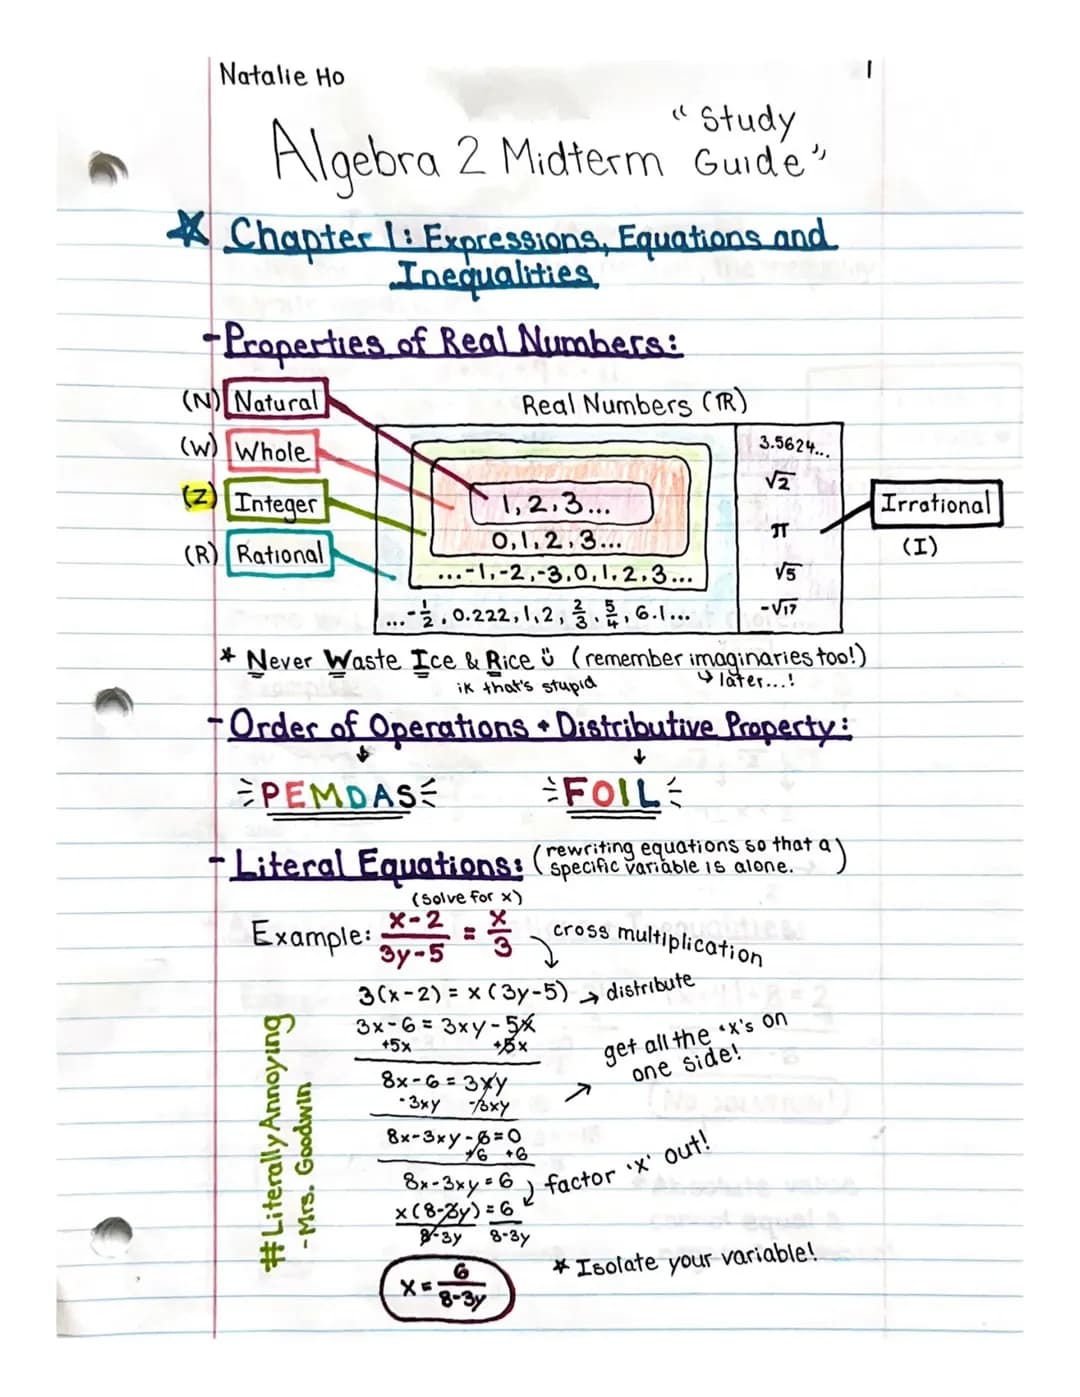 Natalie Ho
1
Algebra 2 Midterm "Study Guide"
Chapter 1: Expressions, Equations and
Inequalities
-Properties of Real Numbers:
(N) Natural
(W) Whole
(Z) Integer
(R) Rational
Real Numbers (ℝ)
1, 2, 3...
0, 1, 2, 3...
...-1, -2, -3, 0, 1, 2, 3...
...-1/2, 0.222, 1, 2, 2/3, 5/4, 6.1...
3.5624...
√2
π
√5
-√17
Irrational
(I)
* Never Waste Ice & Rice ü (remember imaginaries too!)
ik that's stupid
↳ later...!
-Order of Operations + Distributive Property:
PEMDAS
FOIL
-Literal Equations: (rewriting equations so that a
specific variable is alone.)
(solve for x)
Example: x-2/3y-5 = x/3
cross multiplication
3(x-2) = x(3y-5) → distribute
3x-6 = 3xy-5x
+5x +5x
get all the 'x's on
one side!
8x-6 = 3xy
-3xy -3xy
8x-3xy-6=0
+6 +6
8x-3xy=6
factor 'x' out!
x(8-3y)=6
8-3y 8-3y
x = 6/8-3y
* Isolate your variable!
#LiterallyAnnoying
-Mrs. Goodwin